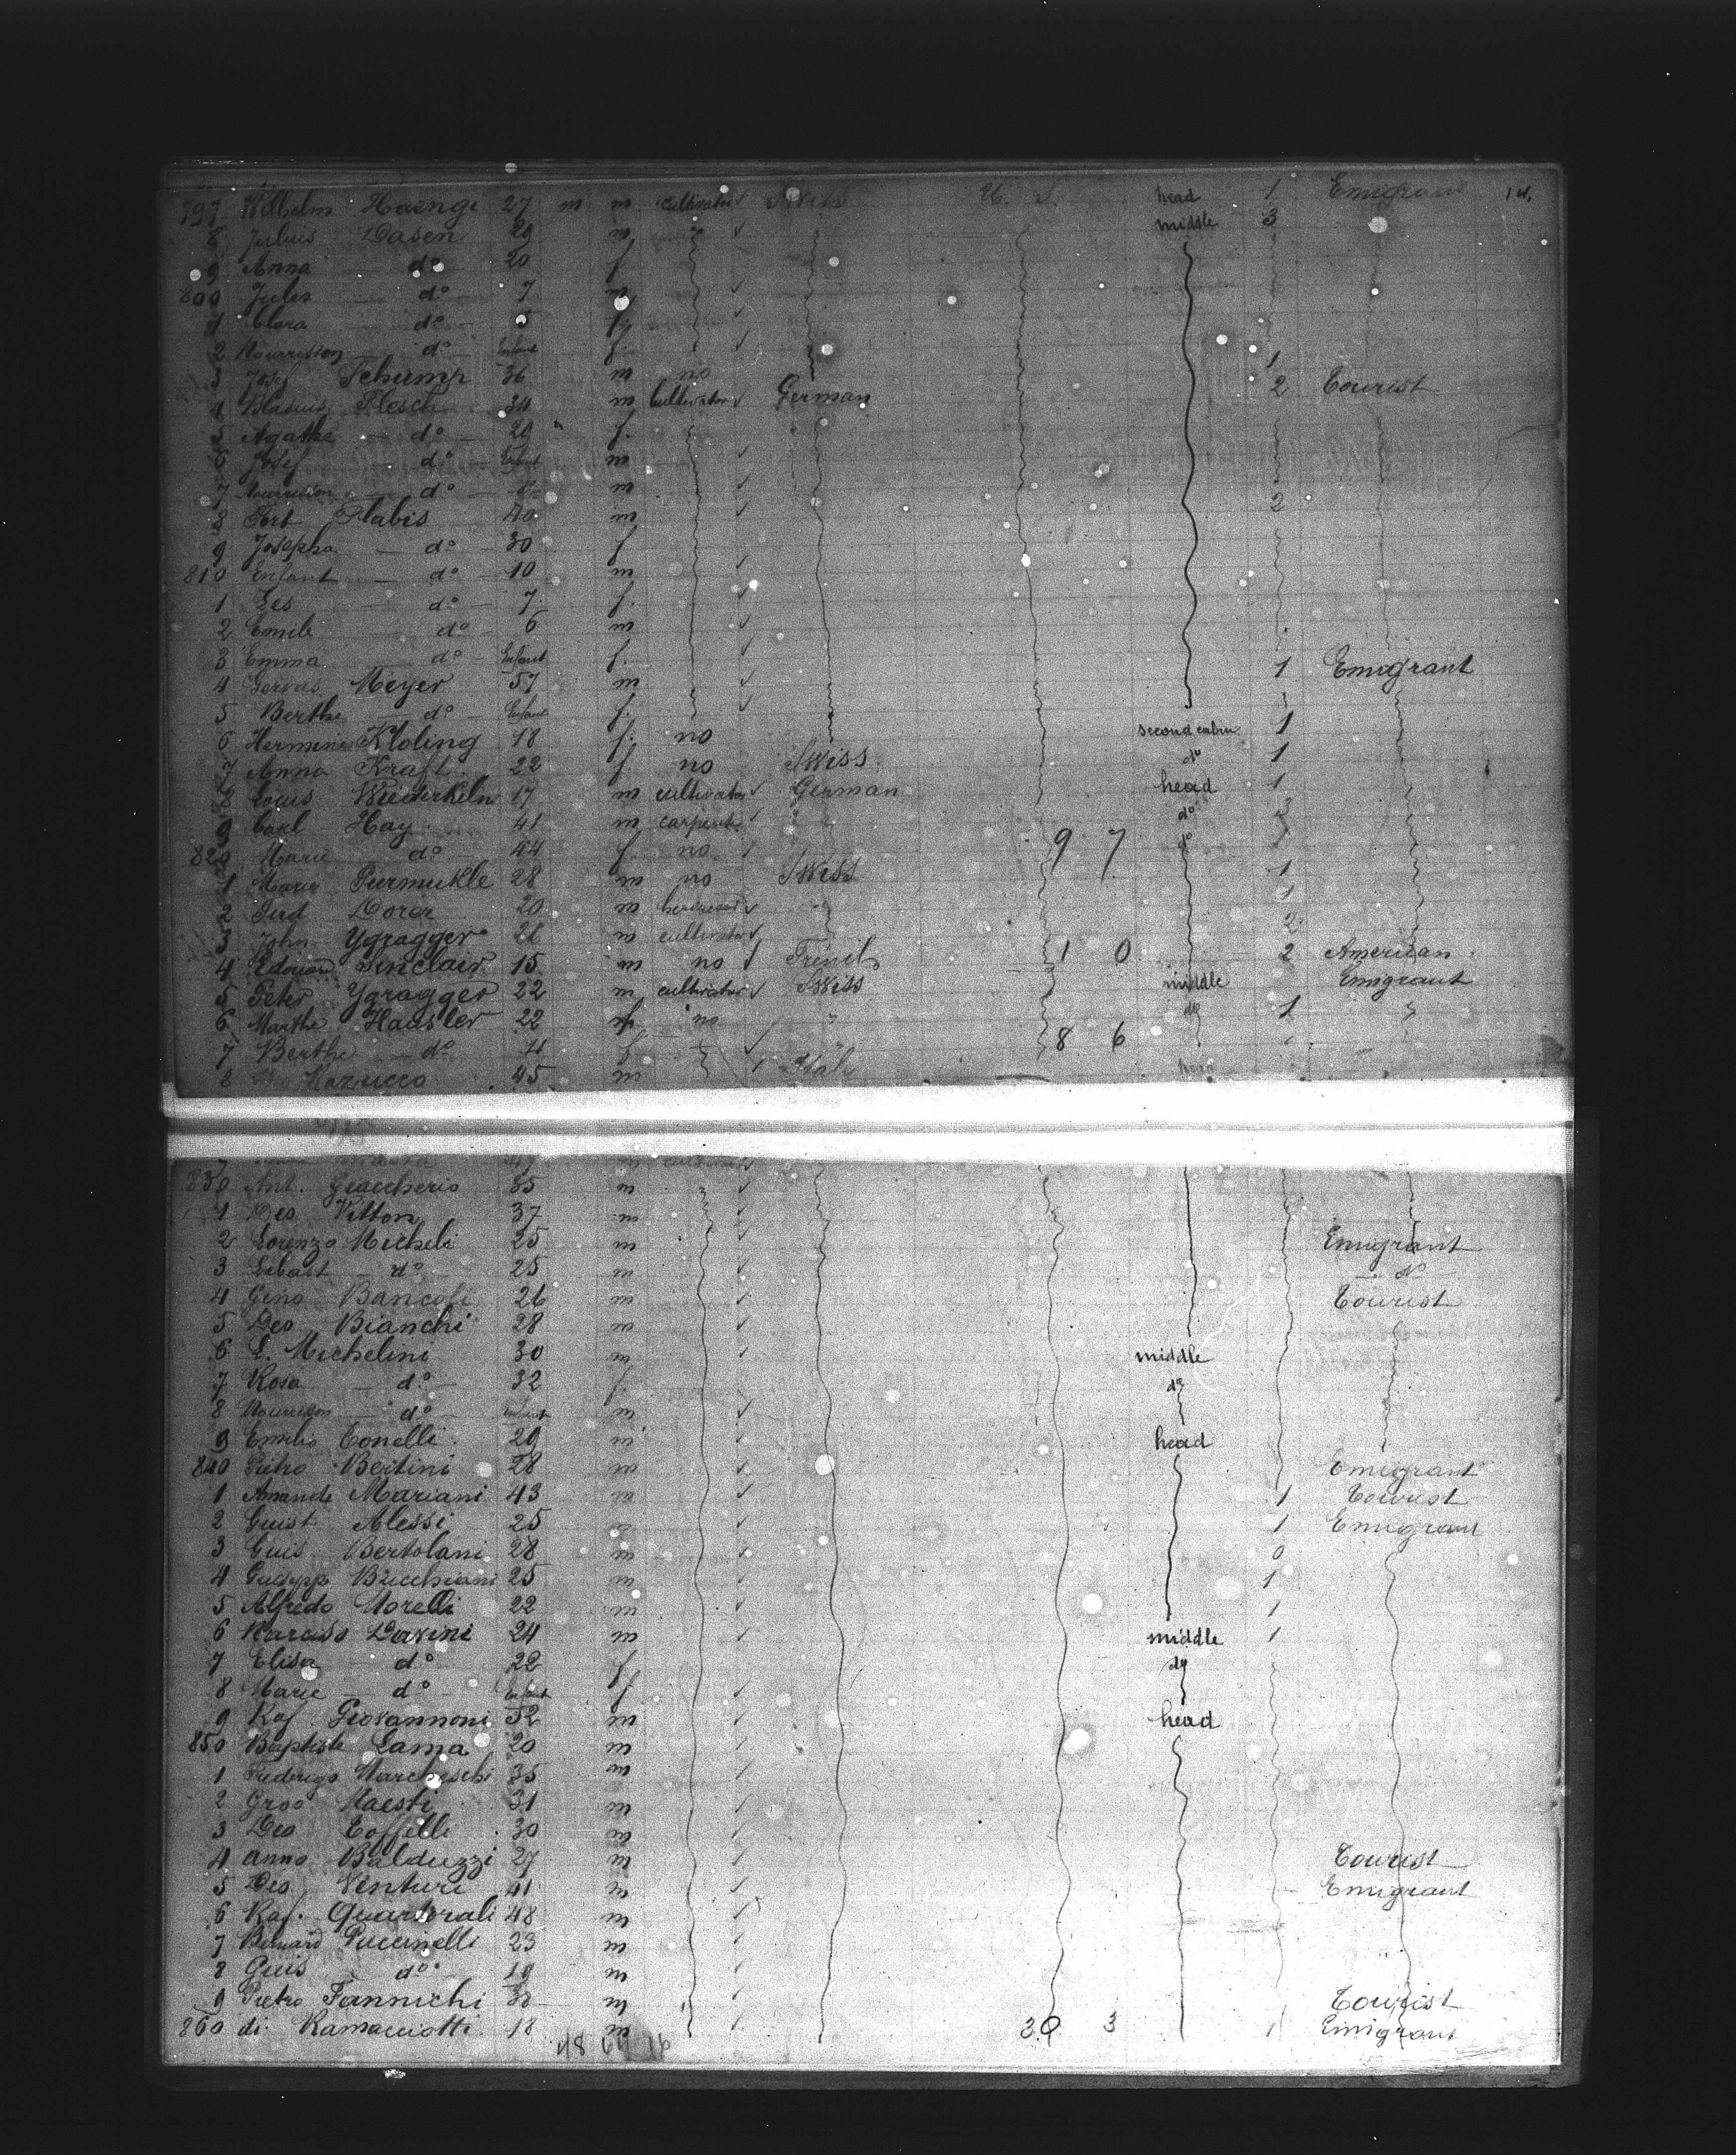 797 Wilhelm Haengi 27 m m cultivator Swiss U. S. head 1 Emigrant 14.
8 Julius Dasen 29 m middle 3
9 Anna do 20 f
800 Jules do 7 m
1 Clara do f
2 Nourrisson do Enfant f.
3 Josef Schump 36 m no 1
4 Blasius Flesch 34 m cultivator German 2 Tourist
5 Agathe do 29 f.
6 Josef do Enfant m
7 Nourrisson do do m
8 Fort Flabis 40 m 2
9 Josepha do 30 f
810 Enfant do 10 m
1 Les do 7 f.
2 Emile do 6 m
3 Emma do Enfant f.
4 Gervas Meyer 57 m 1 Emigrant
5 Berthe do Enfant f.
6 Hermine Kloling 18 f. no second cabin 1
7 Anna Kraft 22 f no Swiss do 1
8 Louis Wiederkeln 17 m cultivator German head 1
9 Carl Hay 41 m carpenter do 2
820 Marie do 44 f no 9 7 do
1 Marie Purmukle 28 m no Swiss 1
2 Ferd Dorer 20 m 1
3 John Ygragger 28 m cultivator 2
4 Edouard Sinclair 15 m no French 1 0 2 American
5 Peter Ygragger 22 m cultivator Swiss middle Emigrant
6 Marthe Hausler 22 f no " do 1
7 Berthe do 4 f 8 6
8 Mazucco 45 m Italy head
830 Ant. Giaccherio 35 m
1 Deo Vitton 37 m
2 Lorenzo Micheli 25 m Emigrant
3 do 25 m do
4 Gino Bancofi 26 m Tourist
5 Deo Bianchi 28 m
6 L. Michelini 30 m middle
7 Rosa do 32 f do
8 Nourrisson do Enfant m
9 Emilio Tonelli 29 m head
840 Pietro Bertini 28 m Emigrant
1 Amande Mariani 43 m 1 Tourist
2 Guist Alessi 25 m 1 Emigrant
3 Guis Bertolani 28 m 0
4 Guisepp Bucchiani 25 m 1
5 Alfredo Morelli 22 m 1
6 Narciso Davini 24 m middle 1
7 Elisa do 22 f do
8 Marie do Enfant f
9 Raf Giovannoni 52 m head
850 Baptiste Lama 20 m
1 Frederigo Marcheschi 35 m
2 Groo Maesti 31 m
3 Deo Toffelli 30 m
4 Anno Balduzzi 27 m Tourist
5 Deo Venturi 41 m Emigrant
6 Raf. Quartorali 48 m
7 Bernard Puccinelli 23 m
8 Guis do 19 m
9 Pietro Fannichi 38 m Tourist
860 di Ramacciotti 18 m 30 3 1 Emigrant